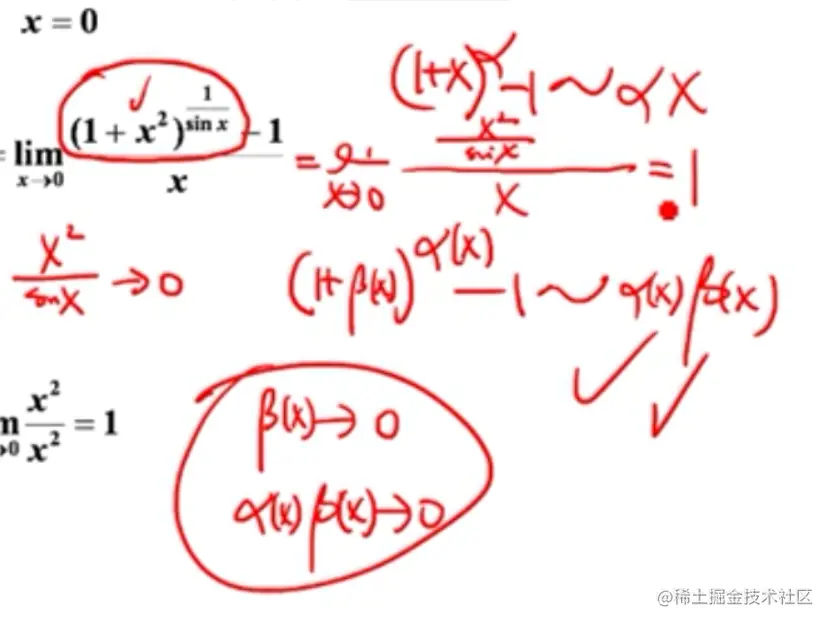 x = 0
(1+x)^α - 1 ~ αx
= lim_{x→0} ((1 + x²)^{1/sin x} - 1)/x = lim_{x→0} (x²/sin x)/x = 1
x²/sin x → 0
(1+β(x))^{α(x)} - 1 ~ α(x)β(x)
m_{→0} x²/x² = 1
β(x) → 0
α(x)β(x) → 0
@稀土掘金技术社区